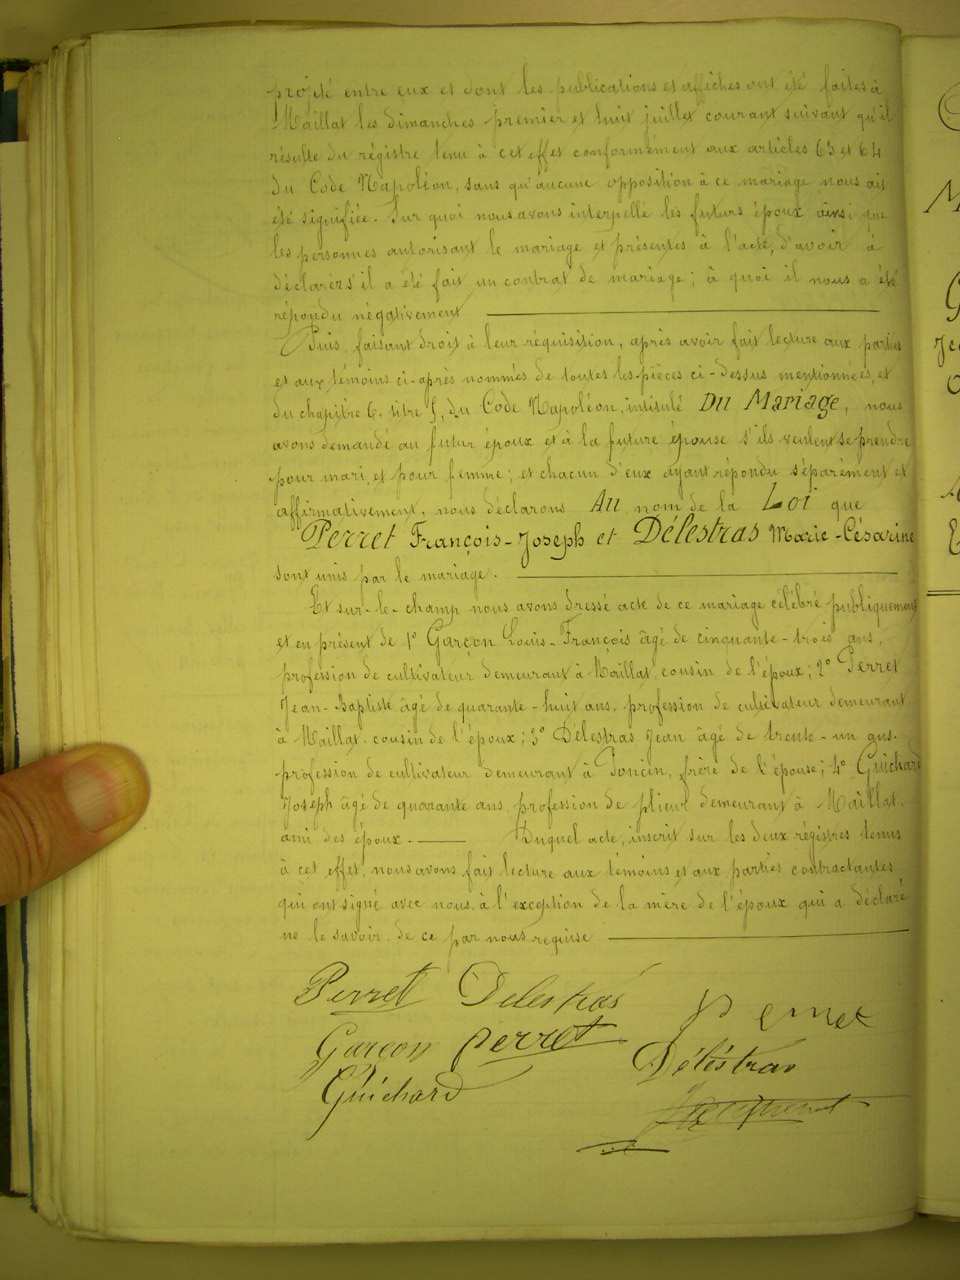 projeté entre eux et dont les publications et affiches ont été faites à
Maillat les dimanches premier et huit juillet courant suivant qu'il
résulte du régistre tenu à cet effet conformément aux articles 63 et 64
du Code Napoléon, sans qu'aucune opposition à ce mariage nous ait
été signifiée. Sur quoi nous avons interpellé les futurs époux ainsi que
les personnes autorisant le mariage et présentes à l'acte, d'avoir à
déclarer s'il a été fait un contrat de mariage; à quoi il nous a été
répondu négativement
Puis, faisant droit à leur réquisition, après avoir fait lecture aux parties
et aux témoins ci-après nommés de toutes les pièces ci-dessus mentionnées, et
du chapitre 6, titre 5, du Code Napoléon, intitulé Du Mariage, nous
avons demandé au futur époux et à la future épouse s'ils veulent se prendre
pour mari et pour femme; et chacun d'eux ayant répondu séparément et
affirmativement, nous déclarons Au nom de la Loi que
Perret François-Joseph et Délestras Marie-Césarine
sont unis par le mariage.
Et sur-le-champ nous avons dressé acte de ce mariage célébré publiquement
et en présent de 1° Garçon Louis-François âgé de cinquante-trois ans,
profession de cultivateur demeurant à Maillat, cousin de l'époux; 2° Perret
Jean-Baptiste âgé de quarante-huit ans, profession de cultivateur demeurant
à Maillat, cousin de l'époux; 3° Délestras Jean âgé de trente-un ans,
profession de cultivateur demeurant à Poncin, frère de l'épouse; 4° Guichard
Joseph âgé de quarante ans, profession de plieur demeurant à Maillat,
ami des époux. Duquel acte, inscrit sur les deux régistres tenus
à cet effet, nous avons fait lecture aux témoins et aux parties contractantes
qui ont signé avec nous, à l'exception de la mère de l'époux qui a déclaré
ne le savoir, de ce par nous requise
Perret Delestras Perret
Garçon Perret Déléstras
Guichard